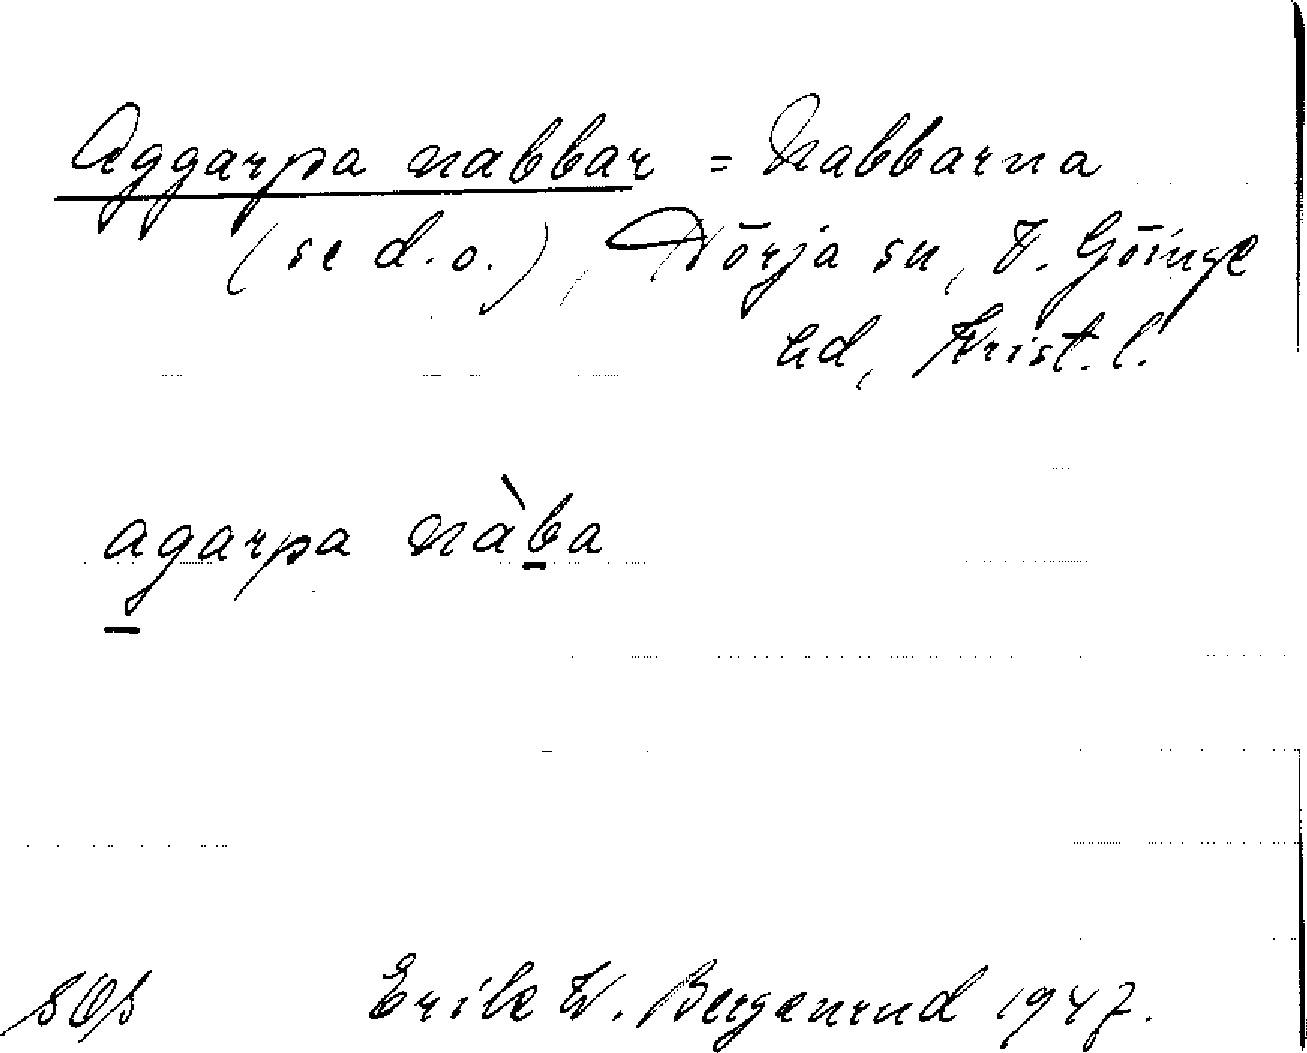 Aggarpa nabbar = Nabbarna
(se d.o.), Nörja sn, V. Göinge
hd, Krist. l.
agarpa nàba
Erik K. Bergenrud 1947.